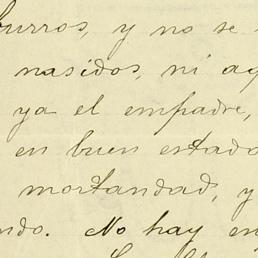 burros, y no se
nasidos, ni aq
ya el empadre,
en buen estado
mortandad, y
ndo. No hay en